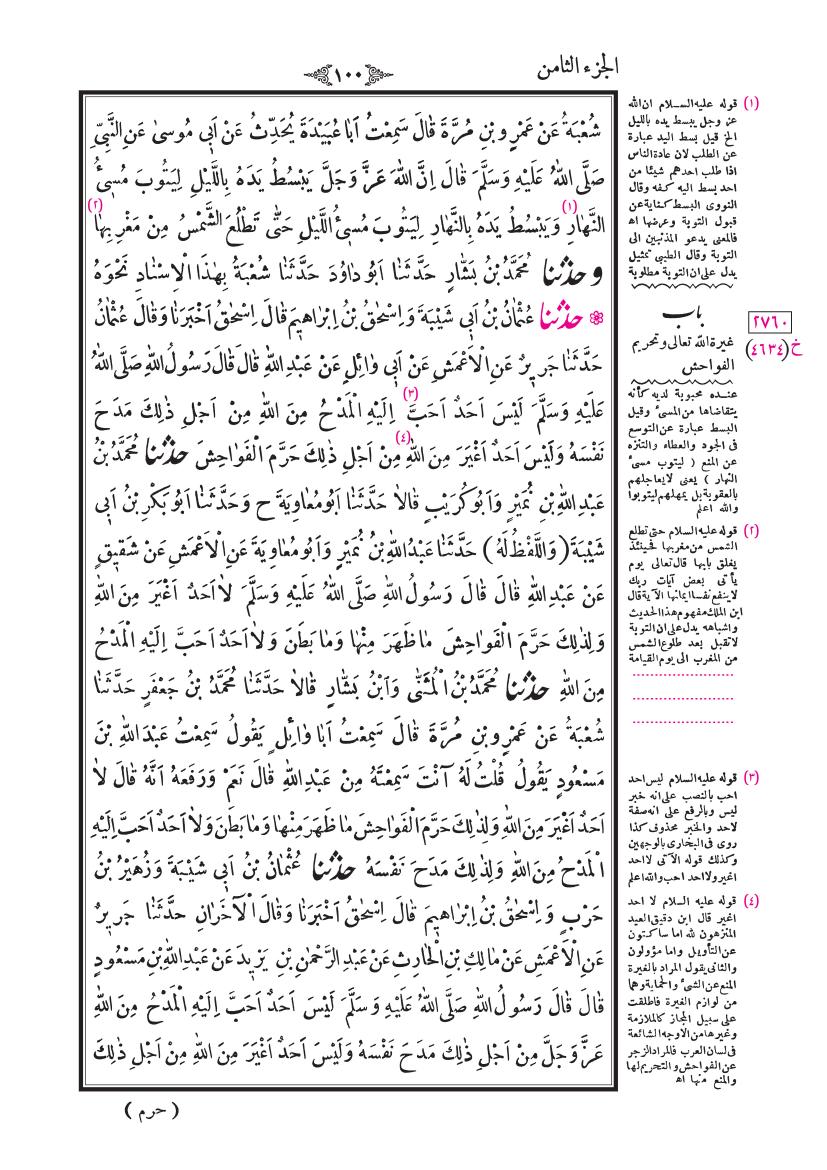 الجزء الثامن
١٠٠
شُعْبَةُ عَنْ عَمْرِو بْنِ مُرَّةَ قَالَ سَمِعْتُ اَبَا عُبَيْدَةَ يُحَدِّثُ عَنْ اَبِى مُوسٰى عَنِ النَّبِىِّ
صَلَّى اللهُ عَلَيْهِ وَسَلَّمَ قَالَ اِنَّ اللهَ عَزَّ وَجَلَّ يَبْسُطُ يَدَهُ بِاللَّيْلِ لِيَتُوبَ مُسِىءُ
النَّهَارِ (١) وَيَبْسُطُ يَدَهُ بِالنَّهَارِ لِيَتُوبَ مُسِىءُ اللَّيْلِ حَتّٰى تَطْلُعَ الشَّمْسُ مِنْ مَغْرِبِهَا (٢)
وحدثنا مُحَمَّدُ بْنُ بَشَّارٍ حَدَّثَنَا اَبُو دَاوُدَ حَدَّثَنَا شُعْبَةُ بِهٰذَا الْاِسْنَادِ نَحْوَهُ
حدثنا عُثْمَانُ بْنُ اَبِى شَيْبَةَ وَاِسْحٰقُ بْنُ اِبْرَاهِيمَ قَالَ اِسْحٰقُ اَخْبَرَنَا وَقَالَ عُثْمَانُ
حَدَّثَنَا جَرِيرٌ عَنِ الْاَعْمَشِ عَنْ اَبِى وَائِلٍ عَنْ عَبْدِ اللهِ قَالَ قَالَ رَسُولُ اللهِ صَلَّى اللهُ
عَلَيْهِ وَسَلَّمَ لَيْسَ اَحَدٌ اَحَبَّ (٣) اِلَيْهِ الْمَدْحُ مِنَ اللهِ مِنْ اَجْلِ ذٰلِكَ مَدَحَ
نَفْسَهُ وَلَيْسَ اَحَدٌ اَغْيَرَ مِنَ اللهِ (٤) مِنْ اَجْلِ ذٰلِكَ حَرَّمَ الْفَوَاحِشَ حدثنا مُحَمَّدُ بْنُ
عَبْدِ اللهِ بْنِ نُمَيْرٍ وَاَبُو كُرَيْبٍ قَالَا حَدَّثَنَا اَبُو مُعَاوِيَةَ ح وَحَدَّثَنَا اَبُو بَكْرِ بْنُ اَبِى
شَيْبَةَ (وَاللَّفْظُ لَهُ) حَدَّثَنَا عَبْدُ اللهِ بْنُ نُمَيْرٍ وَاَبُو مُعَاوِيَةَ عَنِ الْاَعْمَشِ عَنْ شَقِيقٍ
عَنْ عَبْدِ اللهِ قَالَ قَالَ رَسُولُ اللهِ صَلَّى اللهُ عَلَيْهِ وَسَلَّمَ لَا اَحَدٌ اَغْيَرَ مِنَ اللهِ
وَلِذٰلِكَ حَرَّمَ الْفَوَاحِشَ مَا ظَهَرَ مِنْهَا وَمَا بَطَنَ وَلَا اَحَدٌ اَحَبَّ اِلَيْهِ الْمَدْحُ
مِنَ اللهِ حدثنا مُحَمَّدُ بْنُ الْمُثَنّٰى وَابْنُ بَشَّارٍ قَالَا حَدَّثَنَا مُحَمَّدُ بْنُ جَعْفَرٍ حَدَّثَنَا
شُعْبَةُ عَنْ عَمْرِو بْنِ مُرَّةَ قَالَ سَمِعْتُ اَبَا وَائِلٍ يَقُولُ سَمِعْتُ عَبْدَ اللهِ بْنَ
مَسْعُودٍ يَقُولُ قُلْتُ لَهُ آنْتَ سَمِعْتَهُ مِنْ عَبْدِ اللهِ قَالَ نَعَمْ وَرَفَعَهُ اَنَّهُ قَالَ لَا
اَحَدٌ اَغْيَرَ مِنَ اللهِ وَلِذٰلِكَ حَرَّمَ الْفَوَاحِشَ مَا ظَهَرَ مِنْهَا وَمَا بَطَنَ وَلَا اَحَدٌ اَحَبَّ اِلَيْهِ
الْمَدْحُ مِنَ اللهِ وَلِذٰلِكَ مَدَحَ نَفْسَهُ حدثنا عُثْمَانُ بْنُ اَبِى شَيْبَةَ وَزُهَيْرُ بْنُ
حَرْبٍ وَاِسْحٰقُ بْنُ اِبْرَاهِيمَ قَالَ اِسْحٰقُ اَخْبَرَنَا وَقَالَ الْآخَرَانِ حَدَّثَنَا جَرِيرٌ
عَنِ الْاَعْمَشِ عَنْ مَالِكِ بْنِ الْحَارِثِ عَنْ عَبْدِ الرَّحْمٰنِ بْنِ يَزِيدَ عَنْ عَبْدِ اللهِ بْنِ مَسْعُودٍ
قَالَ قَالَ رَسُولُ اللهِ صَلَّى اللهُ عَلَيْهِ وَسَلَّمَ لَيْسَ اَحَدٌ اَحَبَّ اِلَيْهِ الْمَدْحُ مِنَ اللهِ
عَزَّ وَجَلَّ مِنْ اَجْلِ ذٰلِكَ مَدَحَ نَفْسَهُ وَلَيْسَ اَحَدٌ اَغْيَرَ مِنَ اللهِ مِنْ اَجْلِ ذٰلِكَ
(حرم)
(١) قوله عليه السلام ان الله
عز وجل يبسط يده بالليل
الخ قيل بسط اليد عبارة
عن الطلب لان عادة الناس
اذا طلب احدهم شيئا من
احد بسط اليه كفه وقال
النووى البسط كناية عن
قبول التوبة وعرضها اه
فالمعنى يدعو المذنبين الى
التوبة وقال الطيبى تمثيل
يدل على ان التوبة مطلوبة
باب
غيرة الله تعالى وتحريم
الفواحش
٢٧٦٠
خ (٤٦٣٤)
عنده محبوبة لديه كأنه
يتقاضاها من المسىء وقيل
البسط عبارة عن التوسع
فى الجود والعطاء والتنزه
عن المنع (ليتوب مسىء
النهار) يعنى لا يعاجلهم
بالعقوبة بل يمهلهم ليتوبوا
والله اعلم
(٢) قوله عليه السلام حتى تطلع
الشمس من مغربها فحينئذ
يغلق بابها قال تعالى يوم
يأتى بعض آيات ربك
لاينفع نفسا ايمانها الآية قال
ابن الملك مفهوم هذا الحديث
واشباهه يدل على ان التوبة
لاتقبل بعد طلوع الشمس
من المغرب الى يوم القيامة
(٣) قوله عليه السلام ليس احد
احب بالنصب على انه خبر
ليس وبالرفع على انه صفة
لاحد والخبر محذوف كذا
روى فى البخارى بالوجهين
وكذلك قوله الآتى لا احد
اغير ولا احد احب والله اعلم
(٤) قوله عليه السلام لا احد
اغير قال ابن دقيق العيد
المنزهون لله اما ساكتون
عن التأويل واما مؤولون
والثانى يقول المراد بالغيرة
المنع عن الشىء والحماية وهما
من لوازم الغيرة فاطلقت
على سبيل المجاز كالملازمة
وغيرها من الاوجه الشائعة
فى لسان العرب فالمراد الزجر
عن الفواحش والتحريم لها
والمنع منها اه